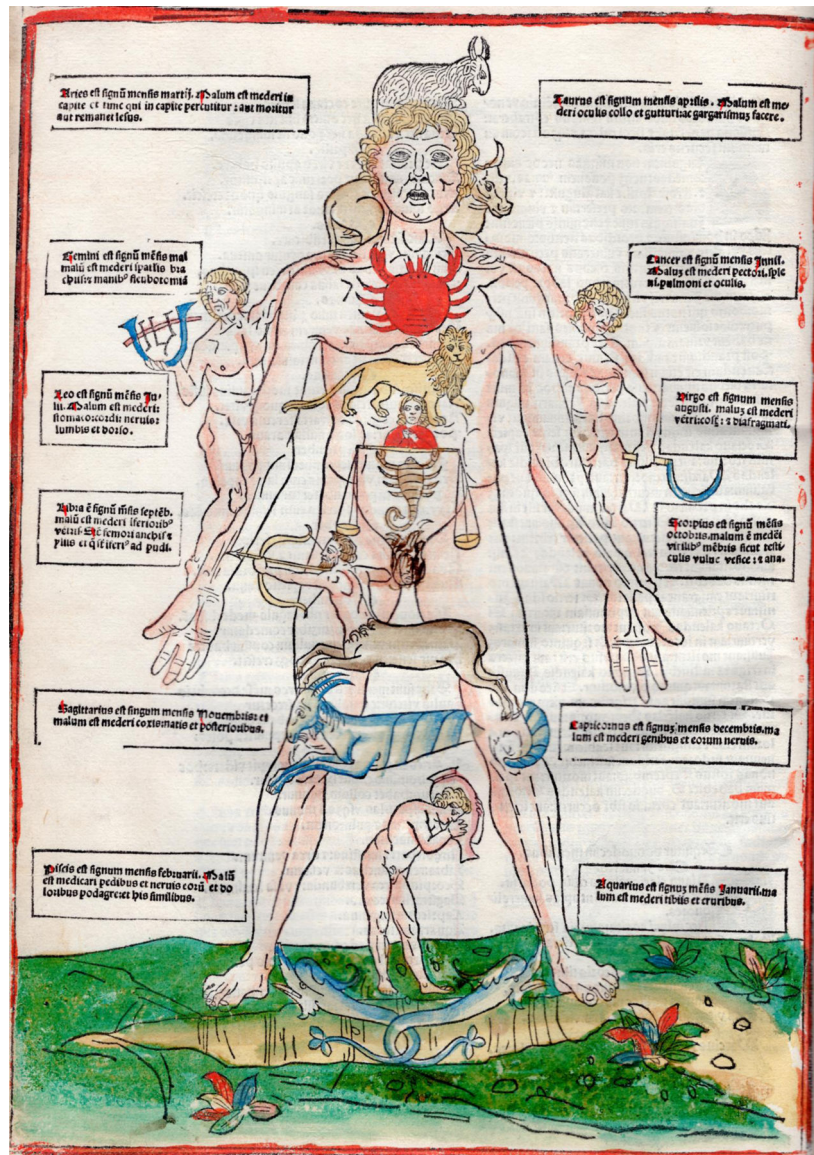 Aries est signũ mensis martij. Malum est mederi in
capite et tunc qui in capite percutitur: aut moritur
aut remanet lesus.
Taurus est signum mensis aprilis. Malum est me
deri oculis collo et gutturi:ac gargarismuʒ facere.
Gemini est signũ mẽsis mai
malũ est mederi spatlis bra
chijs: manibꝰ
Cancer est signũ mensis Junij.
Maluʒ est mederi pectori.sple
ni.pulmoni et oculis.
Leo est signũ mẽsis Ju-
lij. Malum est mederi:
stomaco:cordi: neruis:
lumbis et dorso.
Virgo est signum mensis
augusti. maluʒ est mederi
vẽtri: ⁊ diafragmati.
Libra ẽ signũ mẽsis septẽb.
malũ est mederi
ad pudi.
Scorpius est signũ mẽsis
octobris.malum ẽ medẽi
virilibꝰ mẽbris sicut testi-
culis vulue vesice: ⁊ ano.
Sagittarius est singum mensis Nouembris: et
malum est mederi coxis:natis et posterioribus.
Capricornus est signuʒ mensis decembris.ma
lum est mederi genibus et eorum neruis.
Piscis est signum mensis februarij. Malũ
est medicari pedibus et neruis eorũ et do
loribus podagre:et his similibus.
Aquarius est signuʒ mẽsis Januarij.ma
lum est mederi tibiis et cruribus.